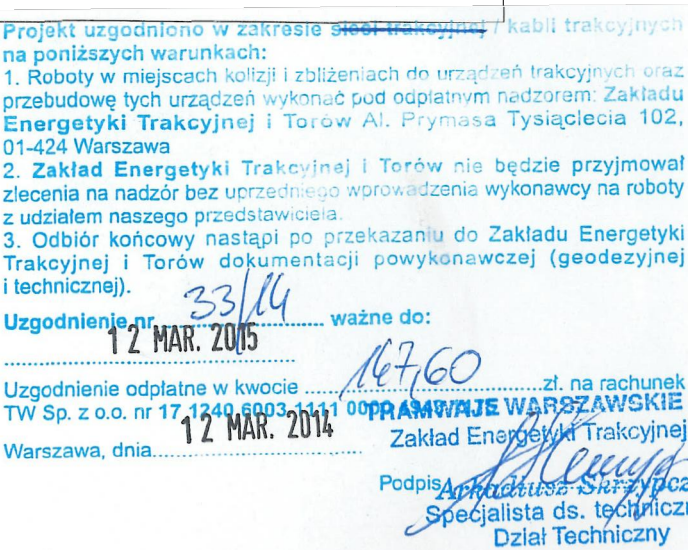 Projekt uzgodniono w zakresie sieci trakcyjnej / kabli trakcyjnych
na poniższych warunkach:
1. Roboty w miejscach kolizji i zbliżeniach do urządzeń trakcyjnych oraz
przebudowę tych urządzeń wykonać pod odpłatnym nadzorem: Zakładu
Energetyki Trakcyjnej i Torów Al. Prymasa Tysiąclecia 102,
01-424 Warszawa
2. Zakład Energetyki Trakcyjnej i Torów nie będzie przyjmował
zlecenia na nadzór bez uprzedniego wprowadzenia wykonawcy na roboty
z udziałem naszego przedstawiciela.
3. Odbiór końcowy nastąpi po przekazaniu do Zakładu Energetyki
Trakcyjnej i Torów dokumentacji powykonawczej (geodezyjnej
i technicznej).
Uzgodnienie nr 33/14 ważne do:
12 MAR. 2015
Uzgodnienie odpłatne w kwocie 147,60 zł. na rachunek
TW Sp. z o.o. nr 17 1240 6003 1111 TRAMWAJE WARSZAWSKIE
Zakład Energetyki Trakcyjnej
Warszawa, dnia 12 MAR. 2014
Podpis Arkadiusz Skrzypcz
Specjalista ds. techniczn
Dział Techniczny